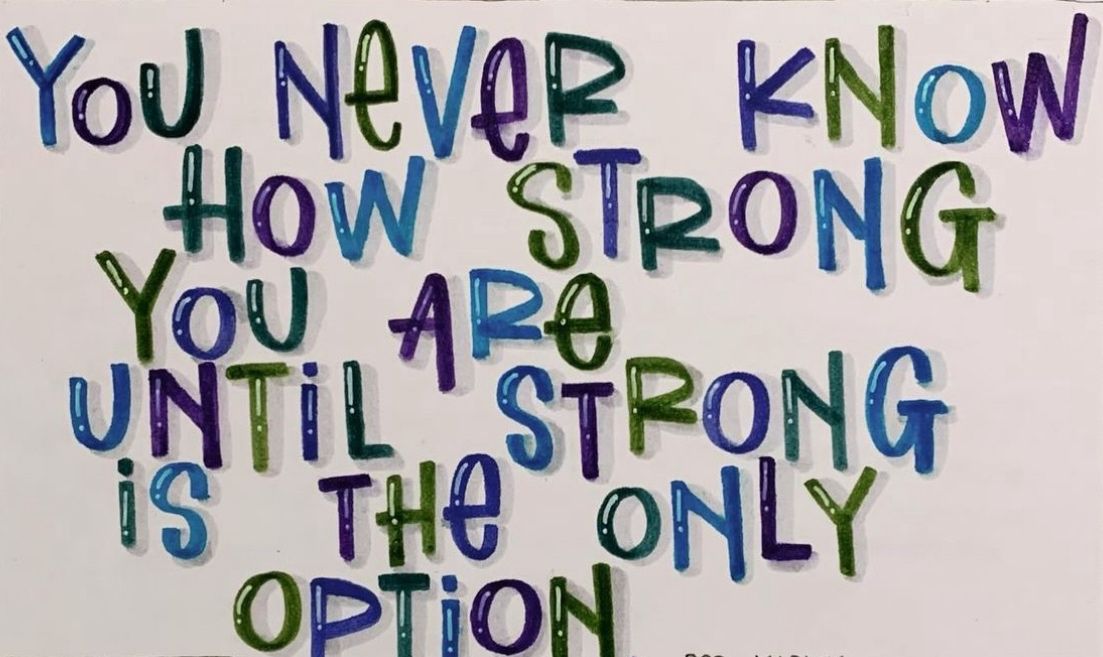 You NeVeR KNOW
HOW STRONG
You ARe
UNTiL STRONG
iS THe ONLY
OPTiON